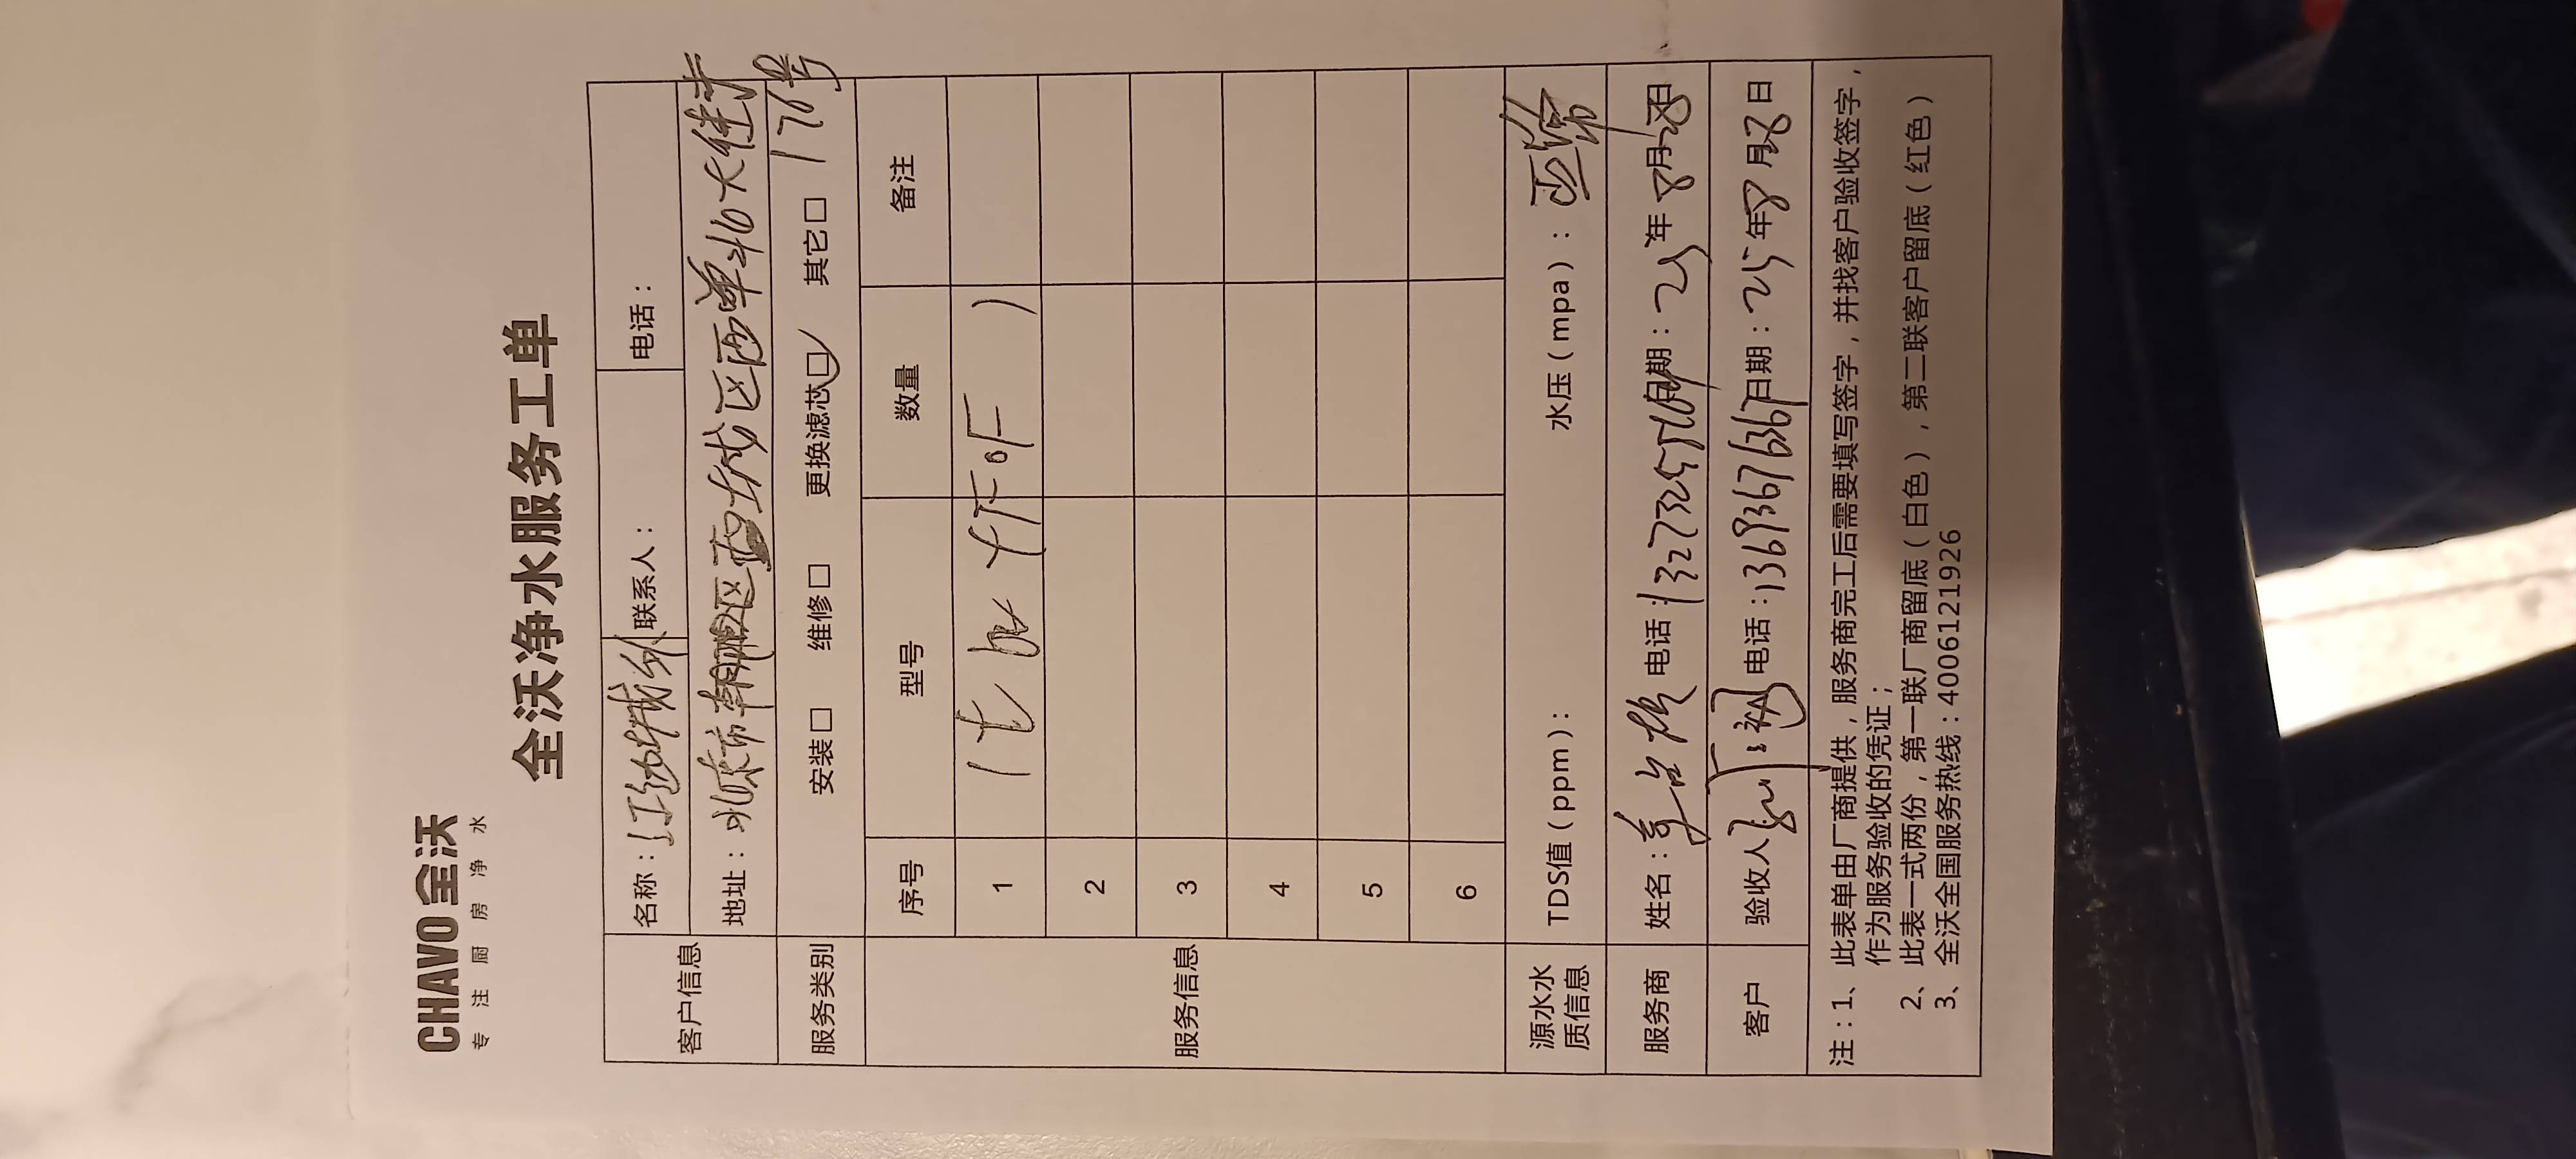 CHAVO 全沃
专注厨房净水
全沃净水服务工单
客户信息 名称：江边城外 联系人： 电话：
地址：北京市 西城区西单北大街
176号
服务类别 安装□ 维修□ 更换滤芯□✓ 其它□
服务信息 序号 型号 数量 备注
1
2
3
4
5
6
源水水质信息 TDS值（ppm）： 水压（mpa）：正常
服务商 姓名： 电话： 日期：25年8月28日
客户 验收人 电话：13693676367 日期：25年8月28日
注：1、此表单由厂商提供，服务商完工后需要填写签字，并找客户验收签字，
作为服务验收的凭证；
2、此表一式两份，第一联厂商留底（白色），第二联客户留底（红色）
3、全沃全国服务热线：4006121926